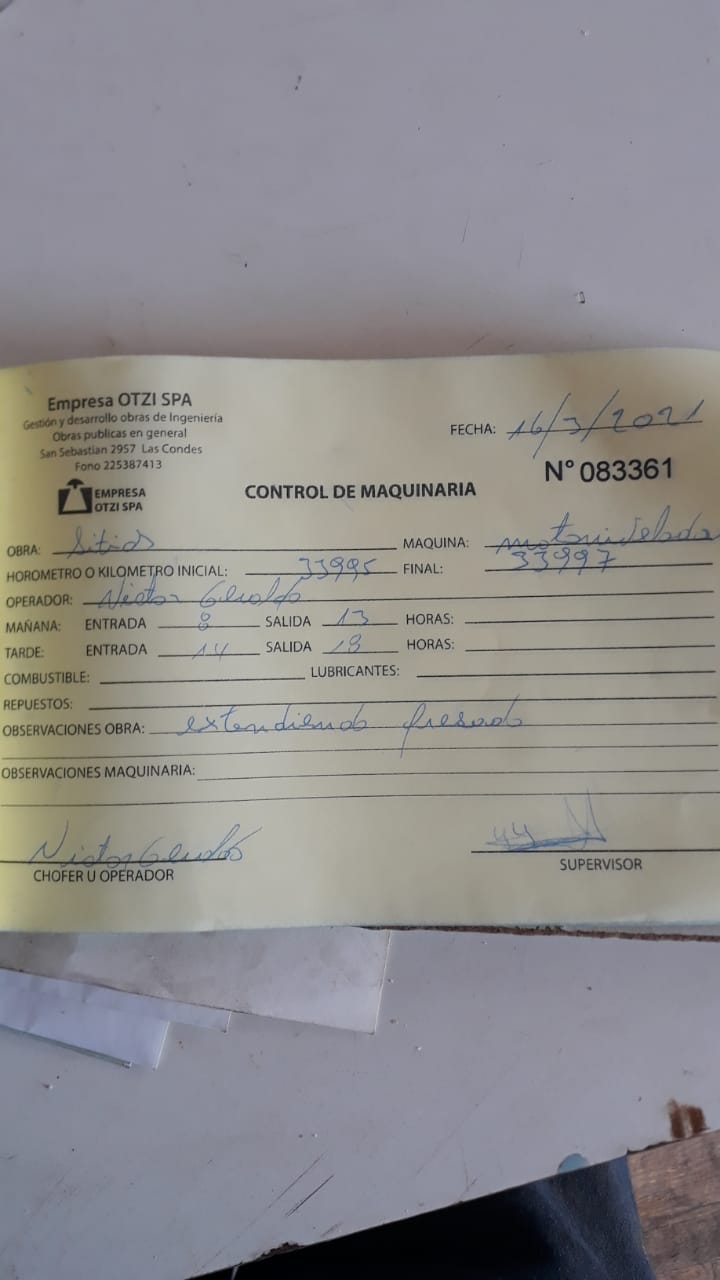 Empresa OTZI SPA
Gestión y desarrollo obras de Ingeniería
Obras publicas en general
San Sebastian 2957 Las Condes
Fono 225387413
FECHA: 16/3/2021
N° 083361
EMPRESA
OTZI SPA
CONTROL DE MAQUINARIA
OBRA: Sitios MAQUINA: motonivelada
HOROMETRO O KILOMETRO INICIAL: 33995 FINAL: 33997
OPERADOR:
MAÑANA: ENTRADA 8 SALIDA 13 HORAS:
TARDE: ENTRADA 14 SALIDA 18 HORAS:
COMBUSTIBLE: LUBRICANTES:
REPUESTOS:
OBSERVACIONES OBRA: extendiendo fresado
OBSERVACIONES MAQUINARIA:
CHOFER U OPERADOR
SUPERVISOR